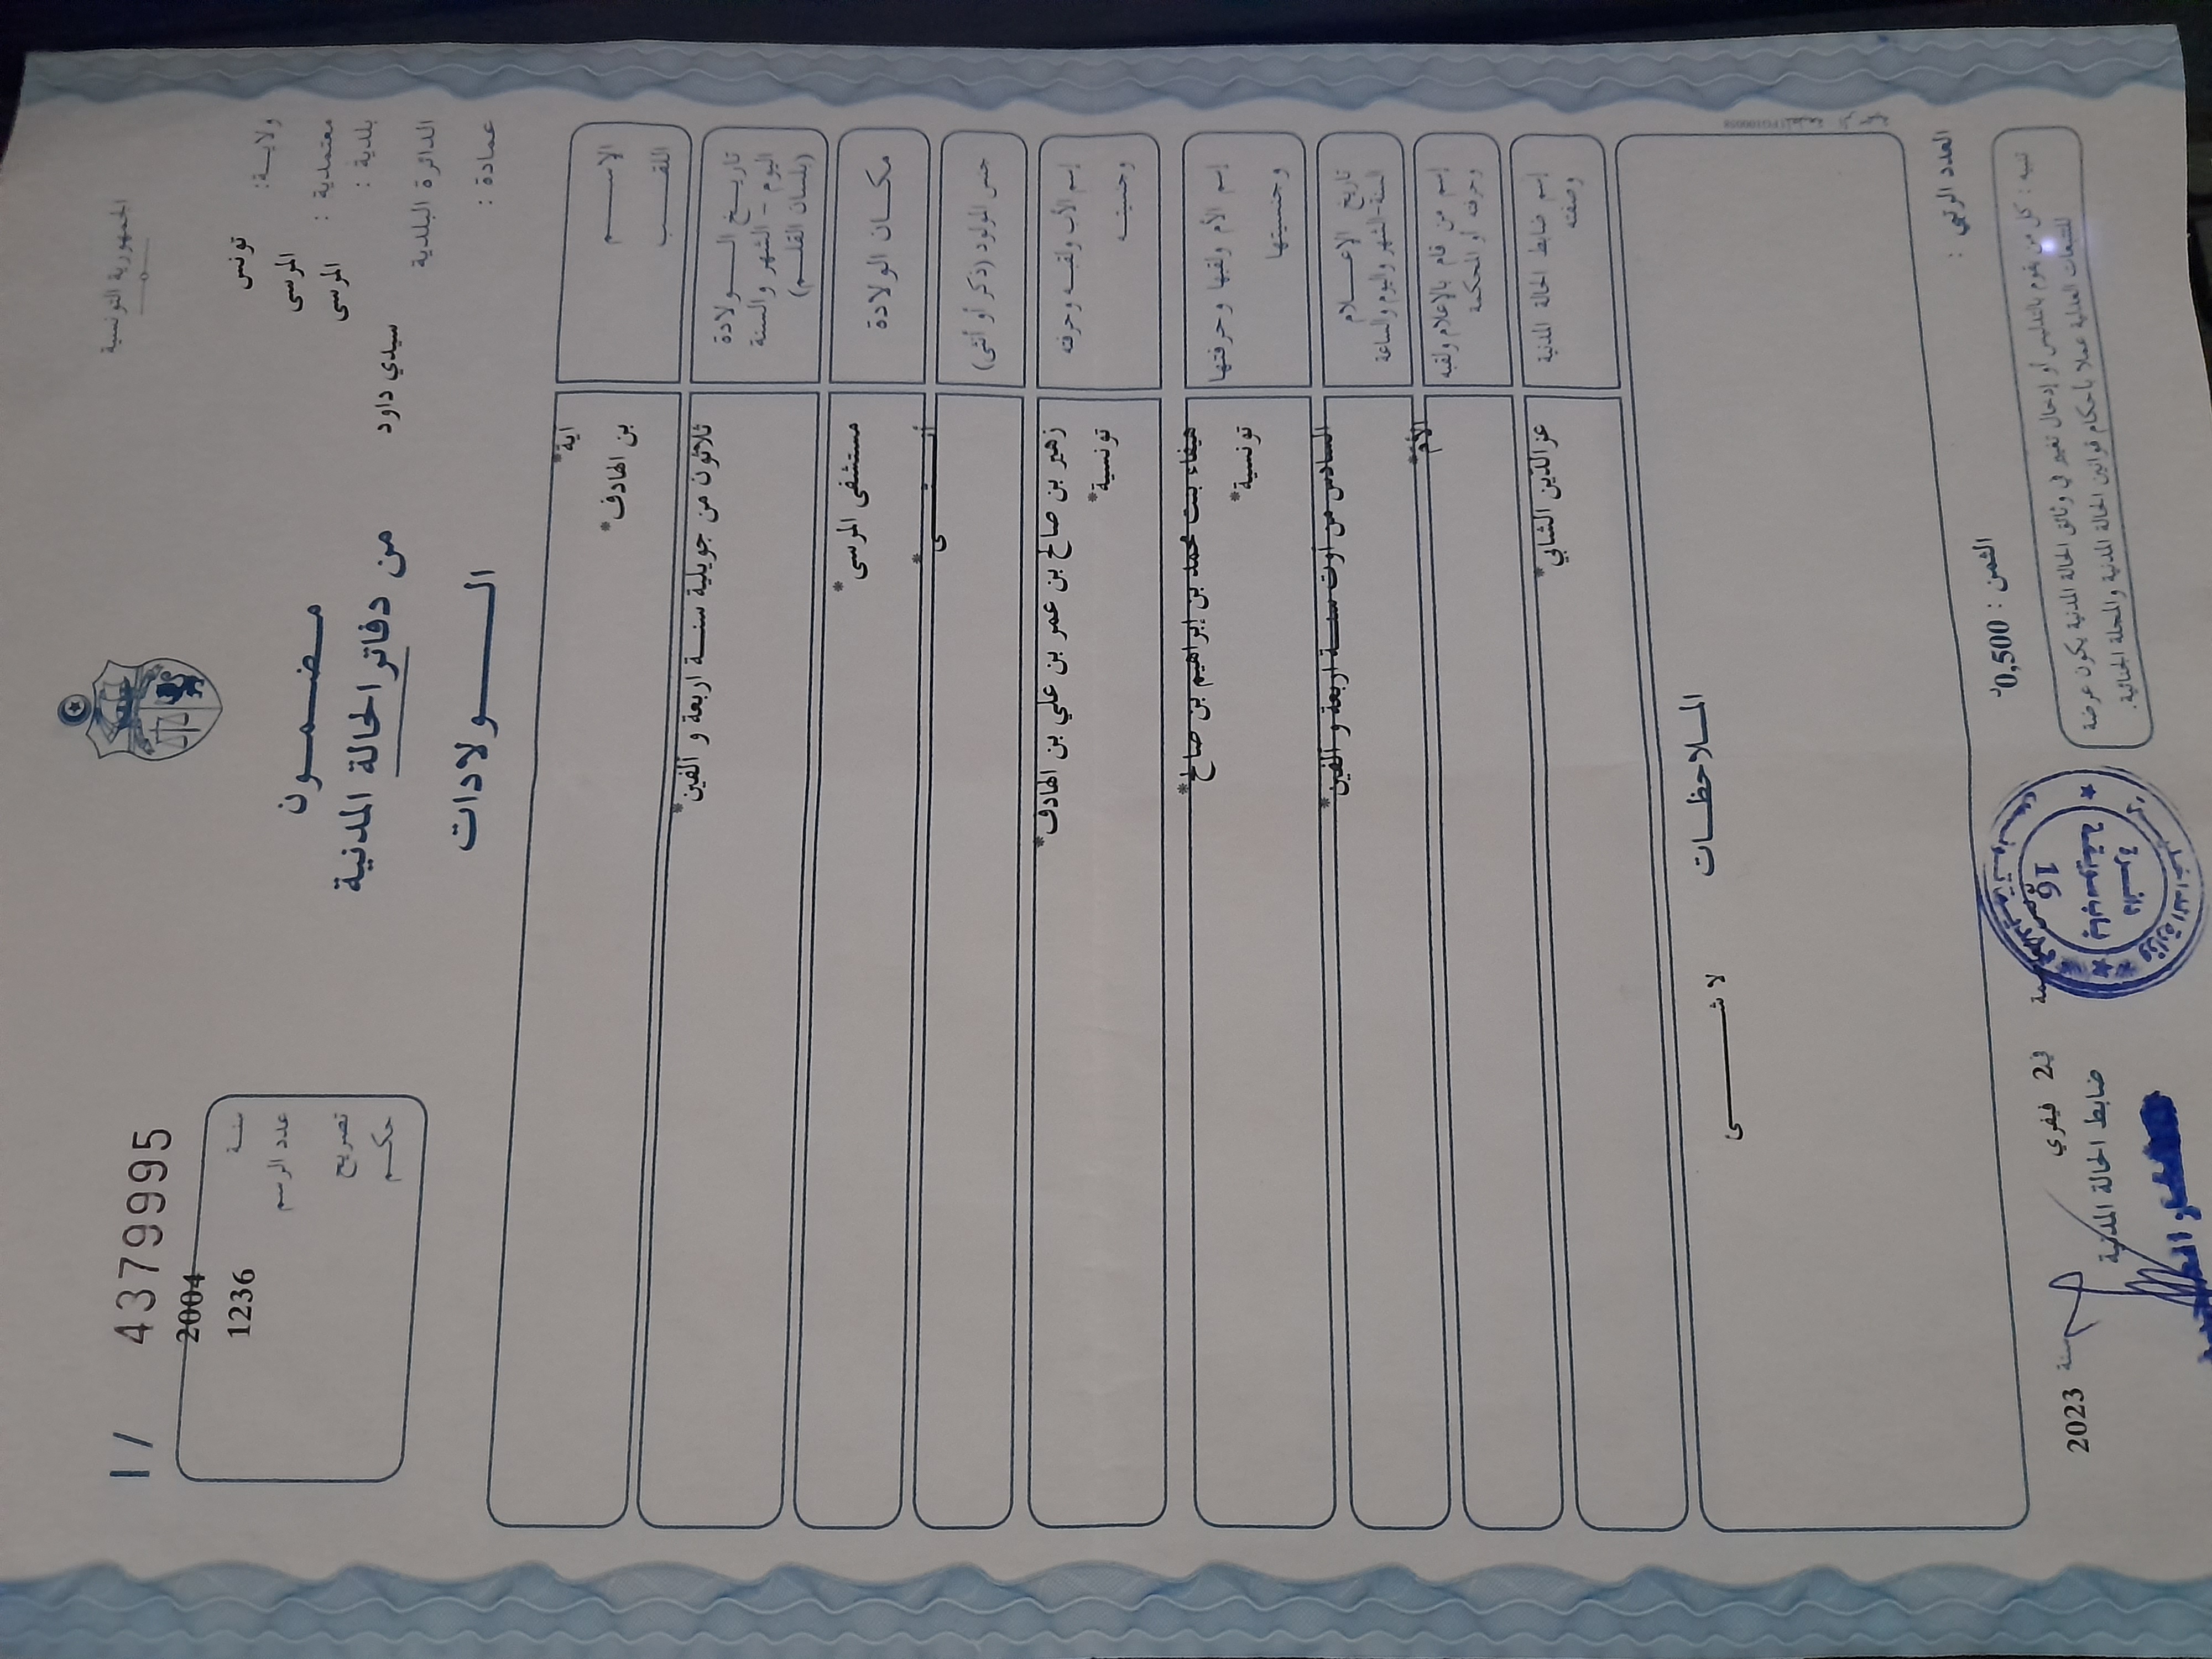 الجمهورية التونسية
1 / 4379995
ولايـــة: تونس
معتمدية : المرسى
بلدية : المرسى
الدائرة البلدية سيدي داود
عمادة :
مـضـمـــون
من دفاتر الحالة المدنية
الـــــولادات
سنــة 2004
عدد الرسم 1236
تصريح
حكـــم
الإســـــم اية*
اللقـــب بن الهادف*
تاريـــخ الـــــولادة
اليوم - الشهر والسنة
(بلسان القلـــم)
ثلاثون من جويلية سنـــة اربعة و الفين*
مكـــان الولادة مستشفى المرسى*
جنس المولود (ذكر أو أنثى) أنـــــثـــــى*
إسم الأب ولقبـــه وحرفته زهير بن صالح بن عمر بن علي بن الهادف*
وجنسيتـــه تونسية*
إسم الأم ولقبها وحرفتها هيفاء بنت محمد بن إبراهيم بن صالح*
وجنسيتها تونسية*
تاريخ الإعـــلام
السنة-الشهر واليوم والساعة
السادس من أوت سنـــة اربعة و الفين*
إسم من قام بالإعلام ولقبه
وحرفته أو المحكمة
الأم*
إسم ضابط الحالة المدنية
وصفته
عزالدين الشابي*
المـــلاحظـــات
لا شـــــــى
العدد الرتبي :
الثمن : 0,500د
تنبيه : كل من يقوم بالتدليس أو إدخال تغيير في وثائق الحالة المدنية يكون عرضة
للتتبعات العدلية عملا بأحكام قوانين الحالة المدنية والمجلة الجنائية.
في 2 فيفري سنة 2023
ضابط الحالة المدنية
16